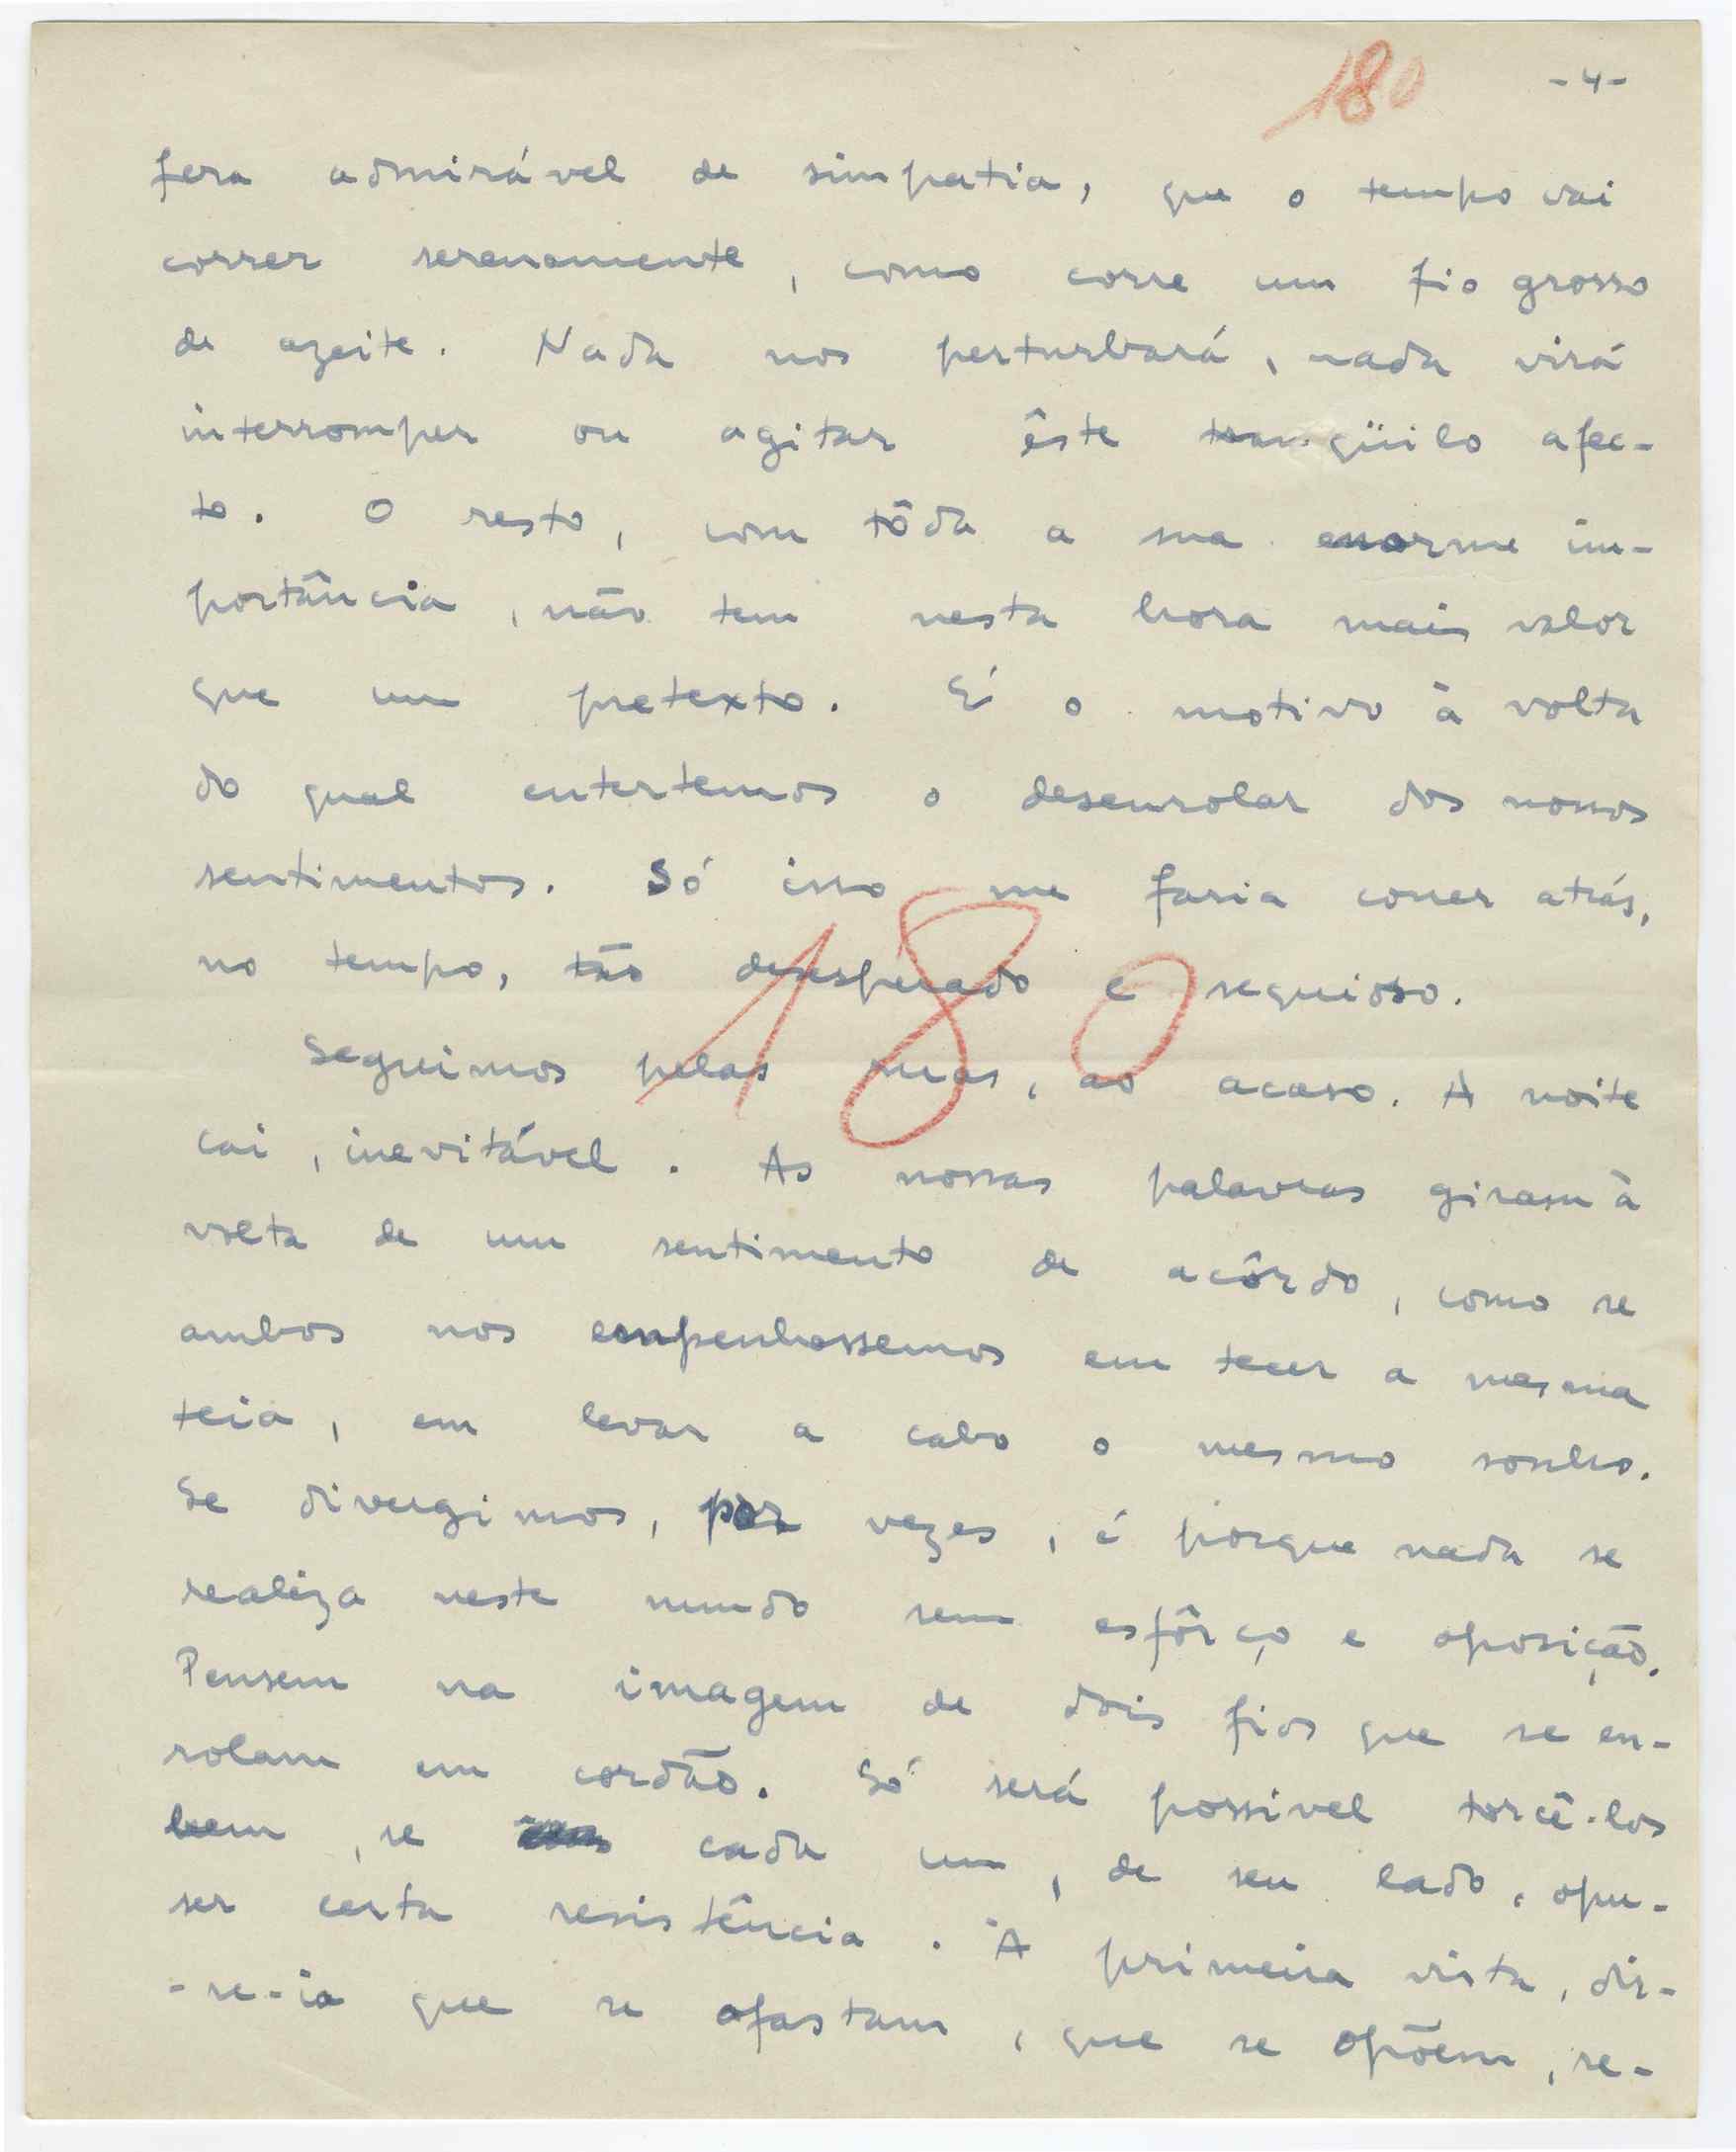 180
-4-
fera admirável de simpatia, que o tempo vai
correr serenamente, como corre um fio grosso
de azeite. Nada nos perturbará, nada virá
interromper ou agitar êste tranqüilo afec-
to. O resto, com tôda a sua enorme im-
portância, não tem nesta hora mais valor
que um pretexto. É o motivo à volta
do qual entertemos o desenrolar dos nossos
sentimentos. Só isso me faria correr atrás,
no tempo, tão desesperado e sequioso.
180
Seguimos pelas ruas, ao acaso. A noite
cai, inevitável. As nossas palavras giram à
volta de um sentimento de acôrdo, como se
ambos nos empenhassemos em tecer a mesma
teia, em levar a cabo o mesmo sonho.
Se divergimos, por vezes, é porque nada se
realiza neste mundo sem esfôrço e oposição.
Pensem na imagem de dois fios que se en-
rolam em cordão. Só será possivel torcê-los
bem, se cada um, de seu lado, opu-
ser certa resistência. À primeira vista, dir-
-se-ia que se afastam, que se opõem, re-